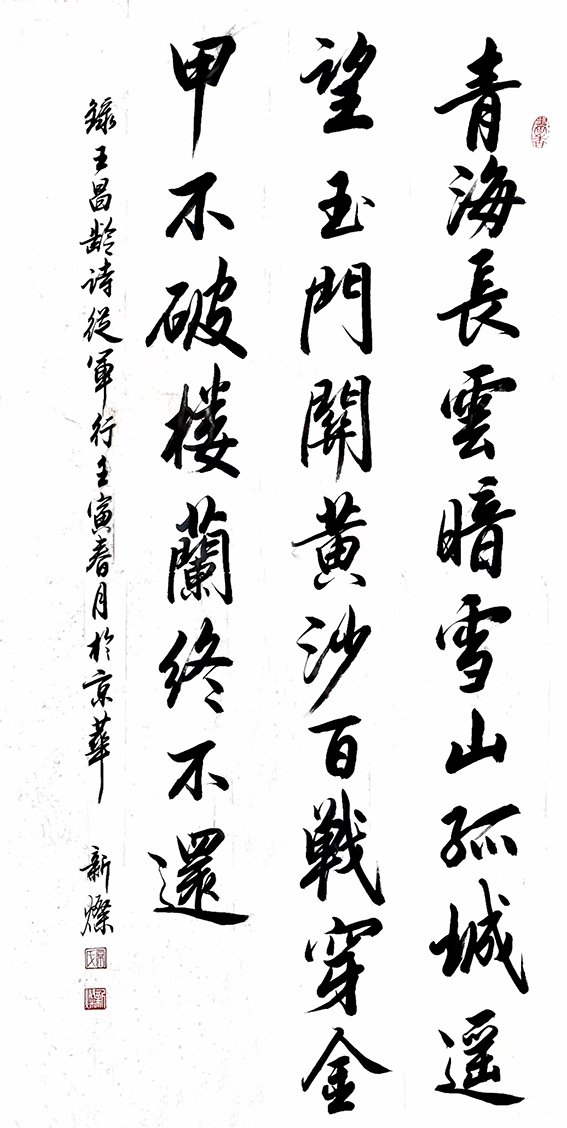 青海長雲暗雪山孤城遥
望玉門關黄沙百戰穿金
甲不破楼蘭终不還
録王昌龄诗從軍行壬寅春月於京華
新燦